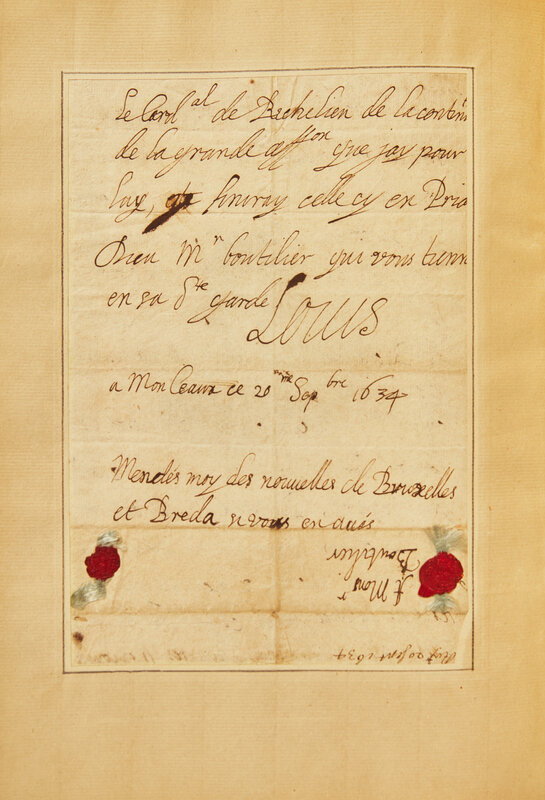 Le Card^al de Richelieu de la contin
de la grande affon que jay pour
luy, finiray celle cy en Pria
Dieu M^r boutilier qui vous tienn
en sa S^te garde
Louis
a Monceaux ce 20^me Sep^bre 1634
Mendés moy des nouuelles de Bruxelles
et Breda sy vous en aués
A Mons^r
Boutilier
20 sept 1634